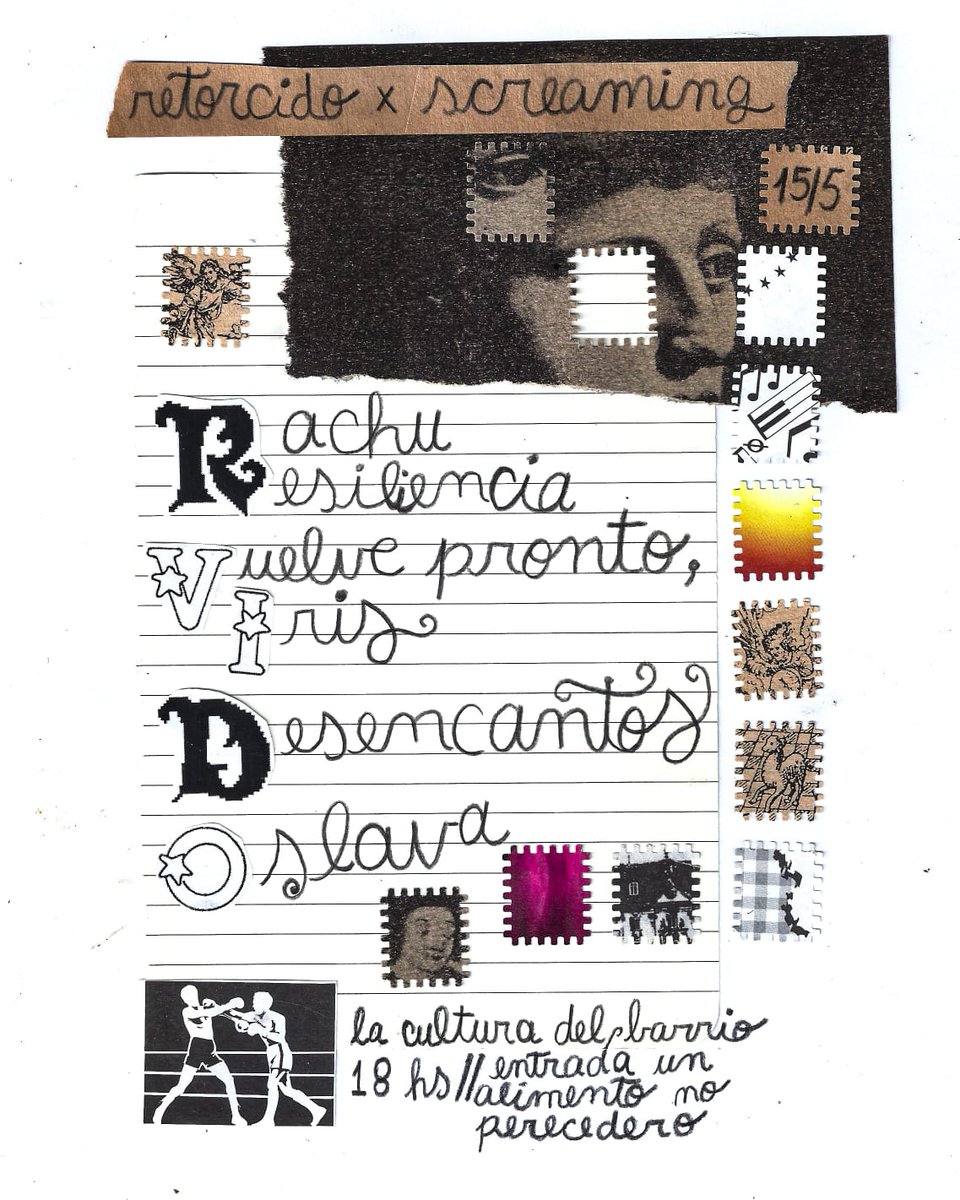 retorcido x screaming
15/5
Rachu
Resiliencia
Vuelve pronto,
Iris
Desencantos
Oslava
la cultura del barrio
18 hs // entrada un
alimento no
perecedero